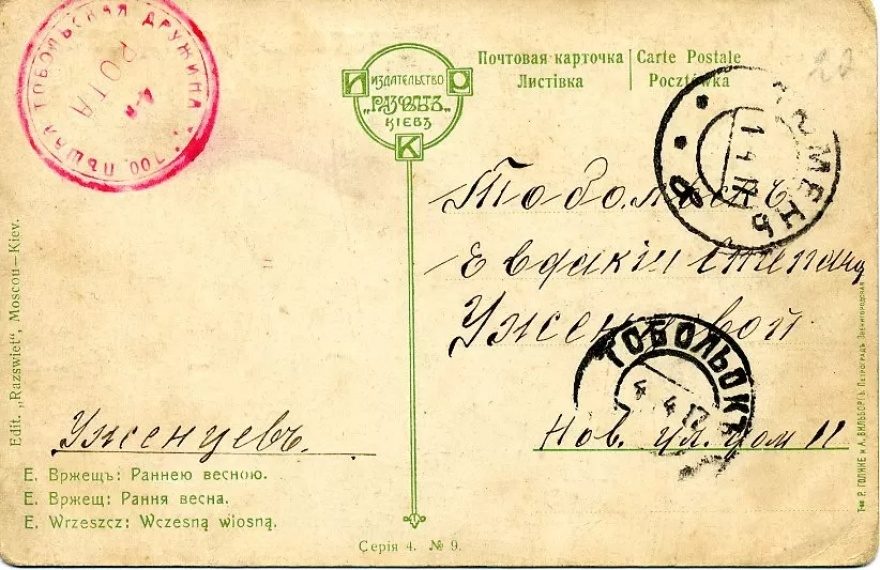 700 ПѢШАЯ ТОБОЛЬСКАЯ ДРУЖИНА
4-я
РОТА
ИЗДАТЕЛЬСТВО
„РАЗСВѢТЪ“
КІЕВЪ
И Р
К
Почтовая карточка
Листівка
Carte Postale
Pocztówka
22
ТЮМЕНЬ
Тобольскъ
Евдакіи Степан
Уженцовой
ТОБОЛЬСКЪ
4 4 17
Нов. ул. дом 11
Уженцевъ.
Edit. „Razswiet“, Moscou—Kiev.
Е. Вржещъ: Раннею весною.
Е. Вржещ: Рання весна.
E. Wrzeszcz: Wczesną wiosną.
Серія 4. № 9.
Т-во Р. ГОЛИКЕ и А. ВИЛЬБОРГЪ. ПЕТРОГРАДЪ. ЗВЕНИГОРОДСКАЯ